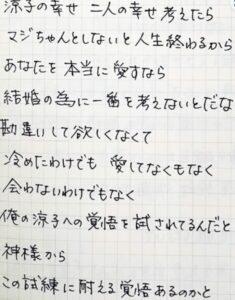 涼子の幸せ 二人の幸せ考えたら
マジちゃんとしないと人生終わるから
あなたを本当に愛すなら
結婚の為に一番を考えないとだな
勘違いして欲しくなくて
冷めたわけでも 愛してなくもなく
会わないわけでもなく
俺の涼子への覚悟を試されてるんだと
神様から
この試練に耐える覚悟あるのかと